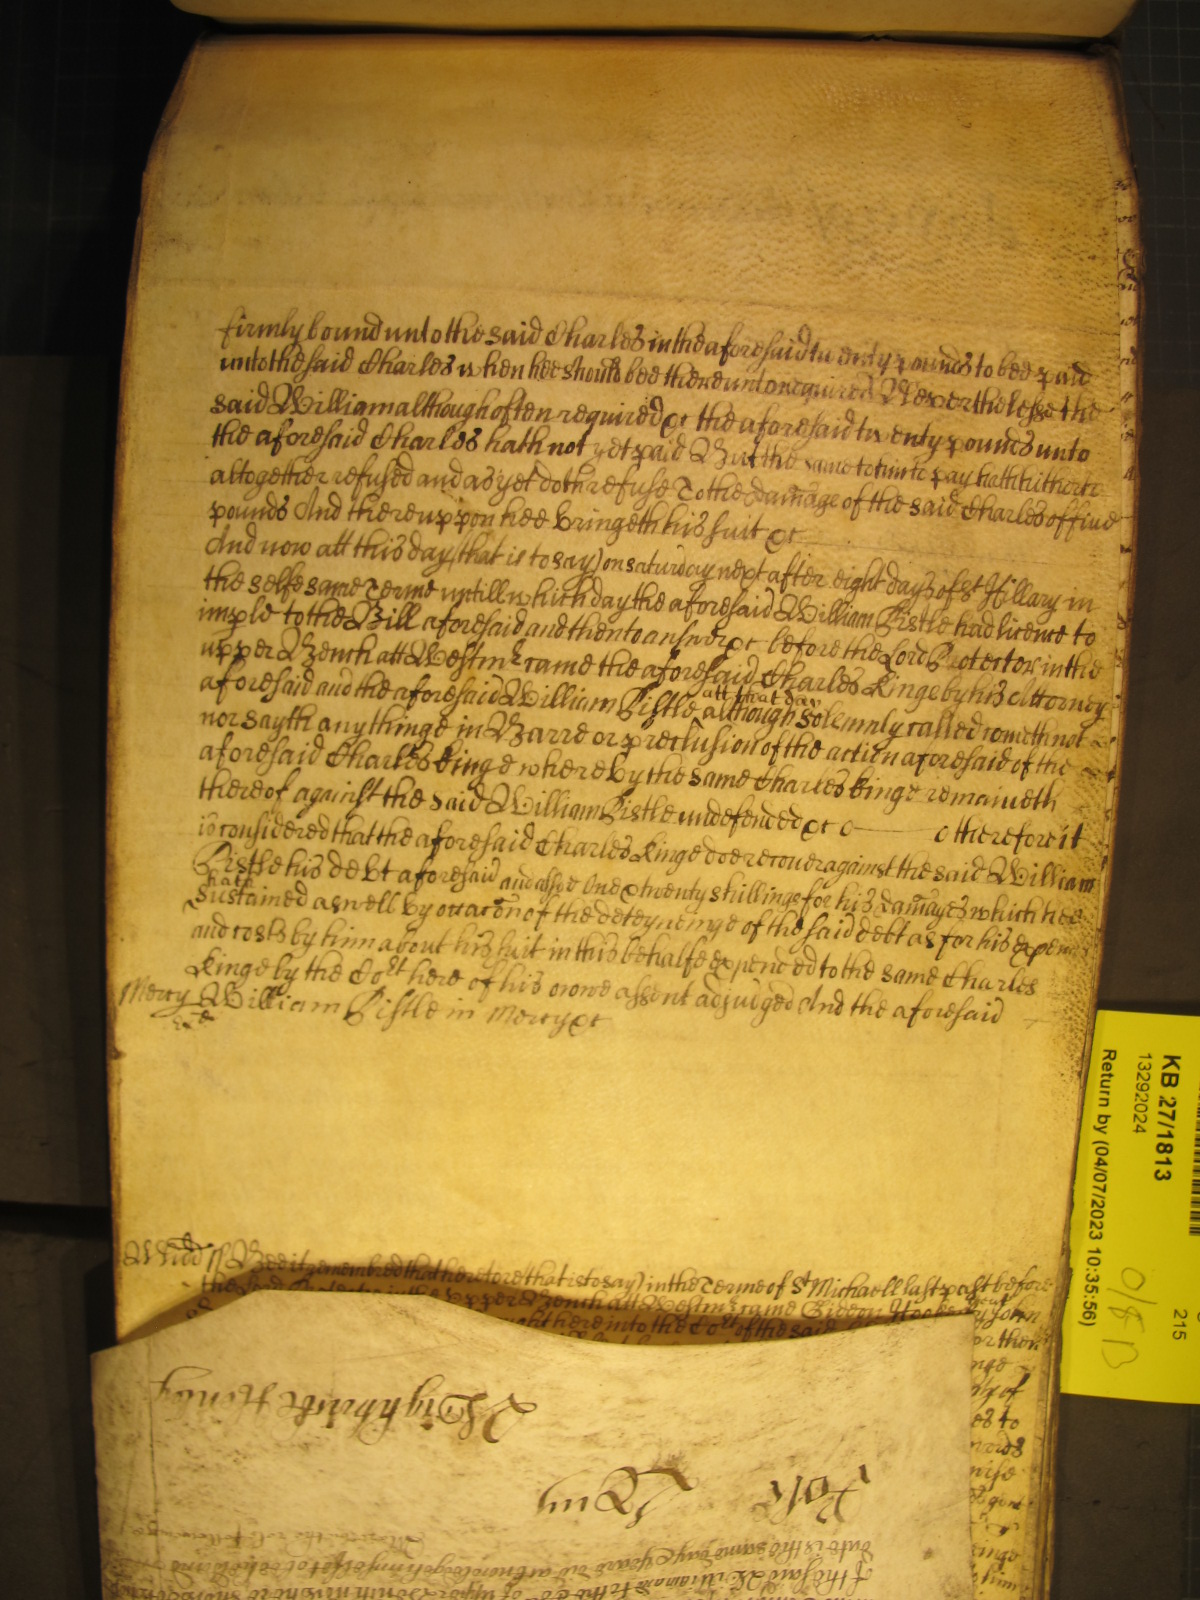 firmly bound unto the said Charles in the aforesaid twenty pounds to bee paid
unto the said Charles when hee should bee thereunto required Neverthelesse the
said William although often required &c the aforesaid twenty pounds unto
the aforesaid Charles hath not yet paid But the same to him to pay hath hitherto
altogether refused and as yet doth refuse To the damage of the said Charles of five
pounds And thereuppon hee bringeth his suit &c
And now att this day (that is to say) on saturday next after eight dayes of St Hillary in
the selfe same Terme untill which day the aforesaid William Pistle had licence to
imple to the Bill aforesaid and then to answer &c before the Lord Protector in the
upper Bench att Westmr came the aforesaid Charles Kinge by his Attorney
aforesaid and the aforesaid William Pistle att that day although solemnly called cometh not
nor sayth any thinge in Barre or preclusion of the action aforesaid of the
aforesaid Charles Kinge whereby the same Charles Kinge remaineth
thereof against the said William Pistle undefended &c Therefore it
is considered that the aforesaid Charles Kinge doe recover against the said William
Pistle his debt aforesaid and alsoe One & twenty shillings for his damages which hee
hath
sustained aswell by occacon of the deteyneinge of the said debt as for his expen
and costs by him about his suit in this behalfe expended to the same Charles
Kinge by the Cort here of his owne assent adjudged And the aforesaid
Mercy William Pistle in Mercy &c
Midd ss Bee it remembred that heretofore that is to say) in the Terme of St Michaell last past before
the Lord Protector in the upper Bench att Westmr came Gideon by John
ught here into the Cort of the said
or then
inge
ty of
es to
ords
Wightwick Henley
Rolls
KB 27/1813
13292024
Return by (04/07/2023 10:35:56)
215